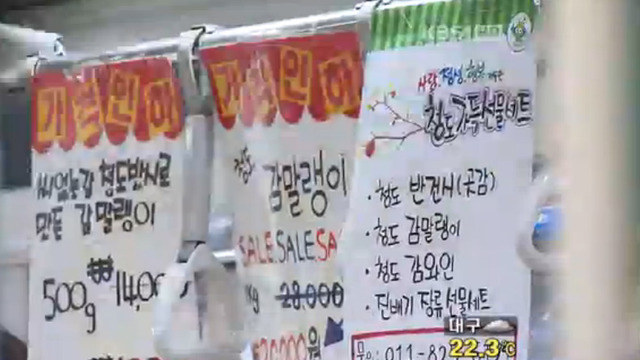 가격인하
씨없는감 청도반시로
만든 감말랭이
500g ₩14,00
가격인하
청도
감말랭이
SALE SALE SA
kg 28,000
₩26000원
사랑, 정성, 행복 가득한
청도 가득 선물세트
· 청도 반건시(곶감)
· 청도 감말랭이
· 청도 감와인
· 진배기 장류 선물세트
문의: 011-82
대구
22.3℃